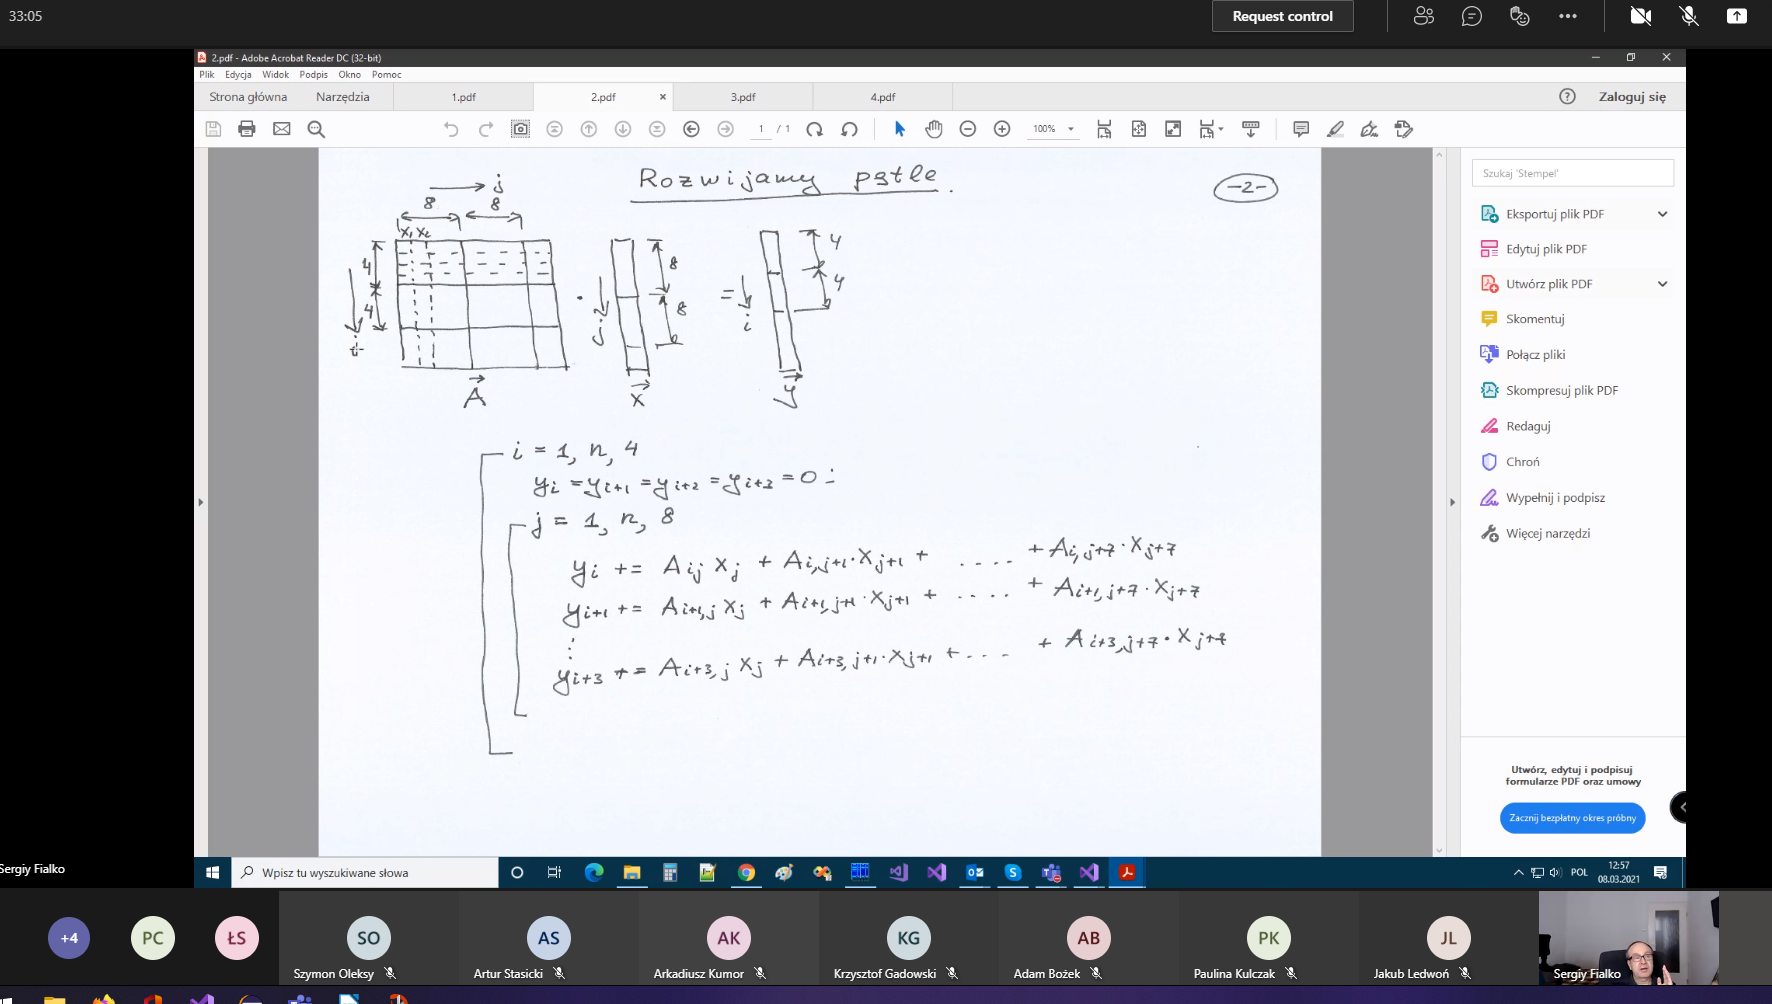 33:05
Request control
2.pdf - Adobe Acrobat Reader DC (32-bit)
Plik Edycja Widok Podpis Okno Pomoc
Strona główna Narzędzia 1.pdf 2.pdf × 3.pdf 4.pdf Zaloguj się
1 / 1 100%
Rozwijamy pętle.
-2-
j
8 8
x₁ x₂
4
4
i
A
·
j
8
8
x
=
i
4
4
y
i = 1, n, 4
yᵢ = yᵢ₊₁ = yᵢ₊₂ = yᵢ₊₃ = 0 ;
j = 1, n, 8
yᵢ += Aᵢⱼ xⱼ + Aᵢ,ⱼ₊₁ · xⱼ₊₁ + .... + Aᵢ,ⱼ₊₇ · xⱼ₊₇
yᵢ₊₁ += Aᵢ₊₁,ⱼ xⱼ + Aᵢ₊₁,ⱼ₊₁ · xⱼ₊₁ + .... + Aᵢ₊₁,ⱼ₊₇ · xⱼ₊₇
⋮
yᵢ₊₃ += Aᵢ₊₃,ⱼ xⱼ + Aᵢ₊₃,ⱼ₊₁ · xⱼ₊₁ + .... + Aᵢ₊₃,ⱼ₊₇ · xⱼ₊₇
Szukaj 'Stempel'
Eksportuj plik PDF
Edytuj plik PDF
Utwórz plik PDF
Skomentuj
Połącz pliki
Skompresuj plik PDF
Redaguj
Chroń
Wypełnij i podpisz
Więcej narzędzi
Utwórz, edytuj i podpisuj
formularze PDF oraz umowy
Zacznij bezpłatny okres próbny
Sergiy Fialko
Wpisz tu wyszukiwane słowa
POL
12:57
08.03.2021
+4 PC ŁS SO AS AK KG AB PK JL
Szymon Oleksy Artur Stasicki Arkadiusz Kumor Krzysztof Gadowski Adam Bożek Paulina Kulczak Jakub Ledwoń Sergiy Fialko